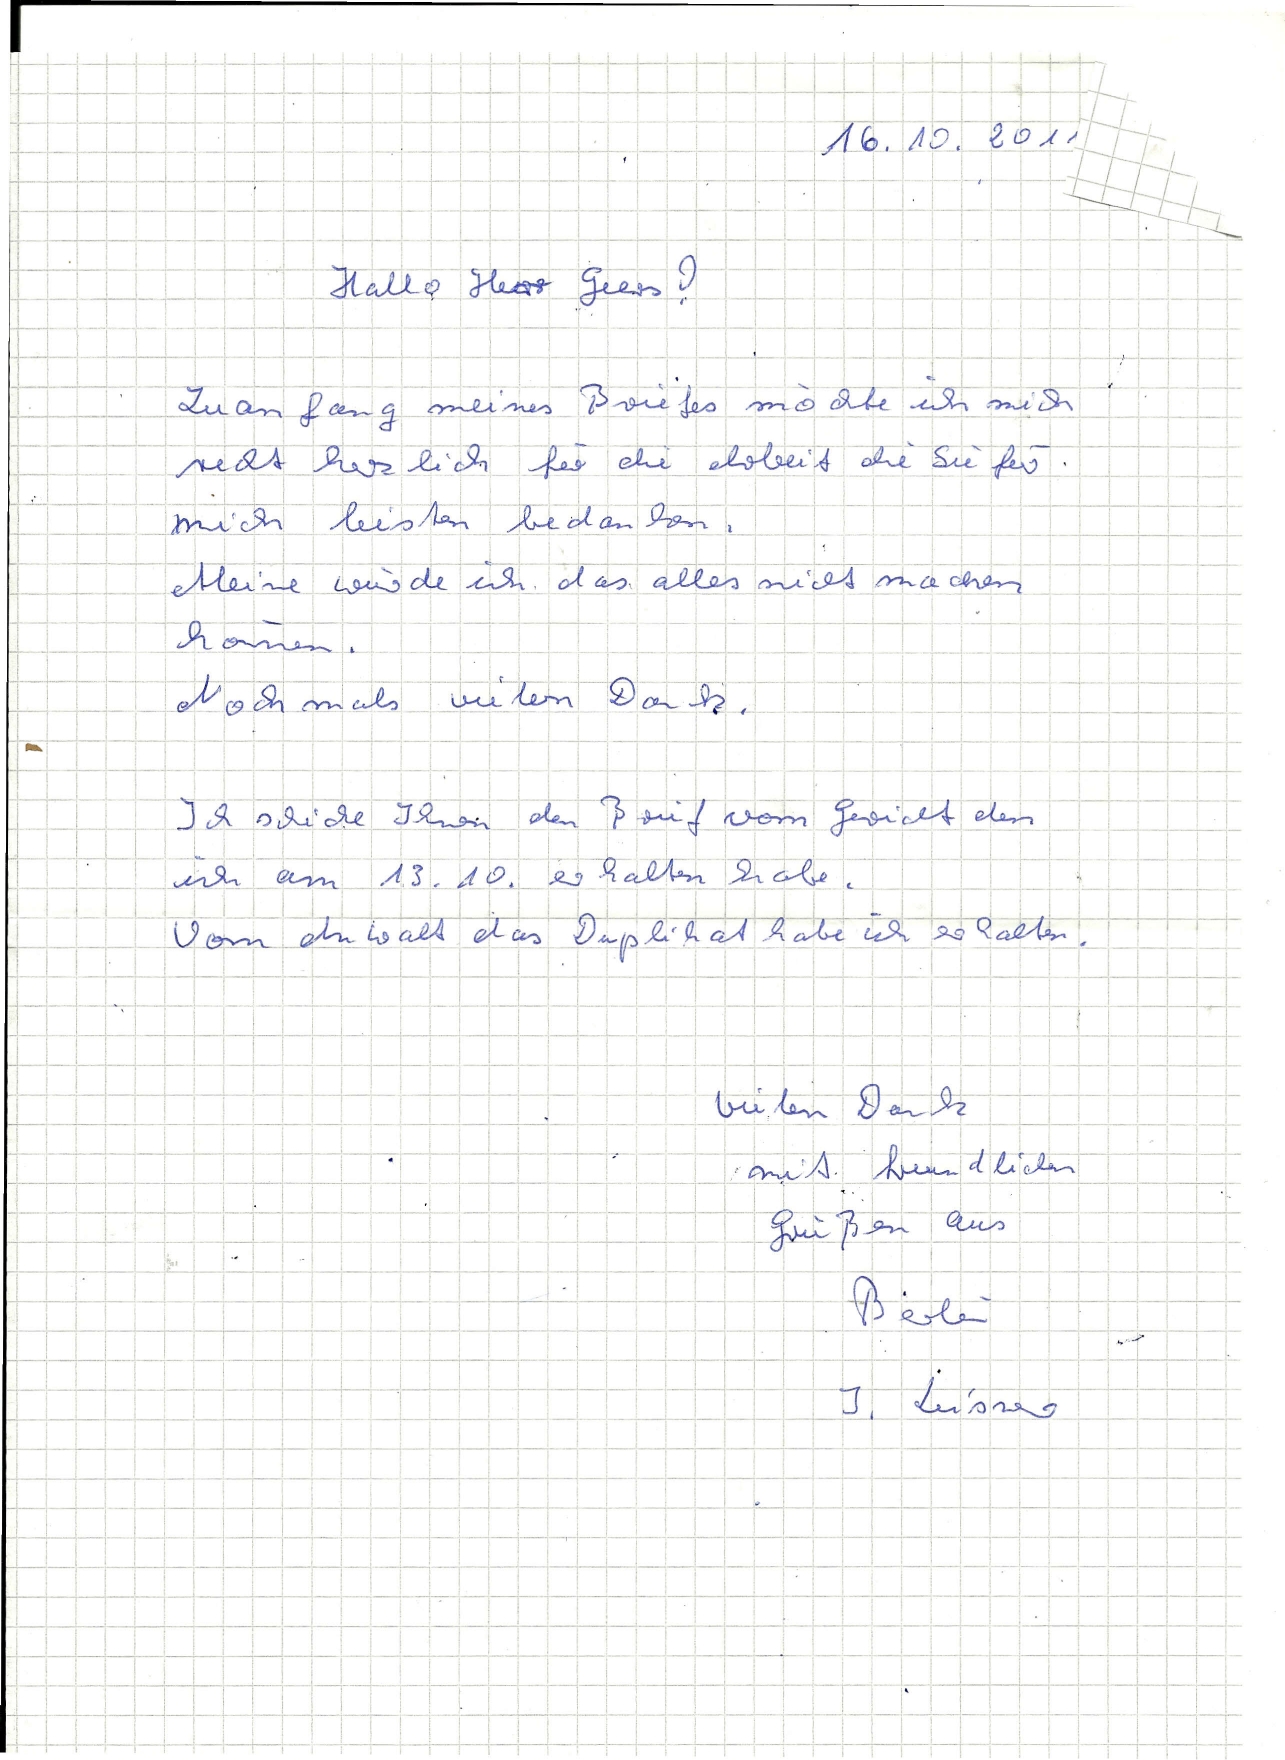 16.10.2011
Hallo Herr Geers!
Zuanfang meines Briefes möchte ich mich
recht herzlich für die Arbeit die Sie für
mich leisten bedanken.
Alleine würde ich das alles nicht machen
können.
Nochmals vielen Dank.
Ich schicke Ihnen den Brief vom Gericht den
ich am 13.10. erhalten habe.
Vom Anwalt das Duplikat habe ich erhalten.
Vielen Dank
mit freundlichen
Grüßen aus
Berlin
I. Leisner